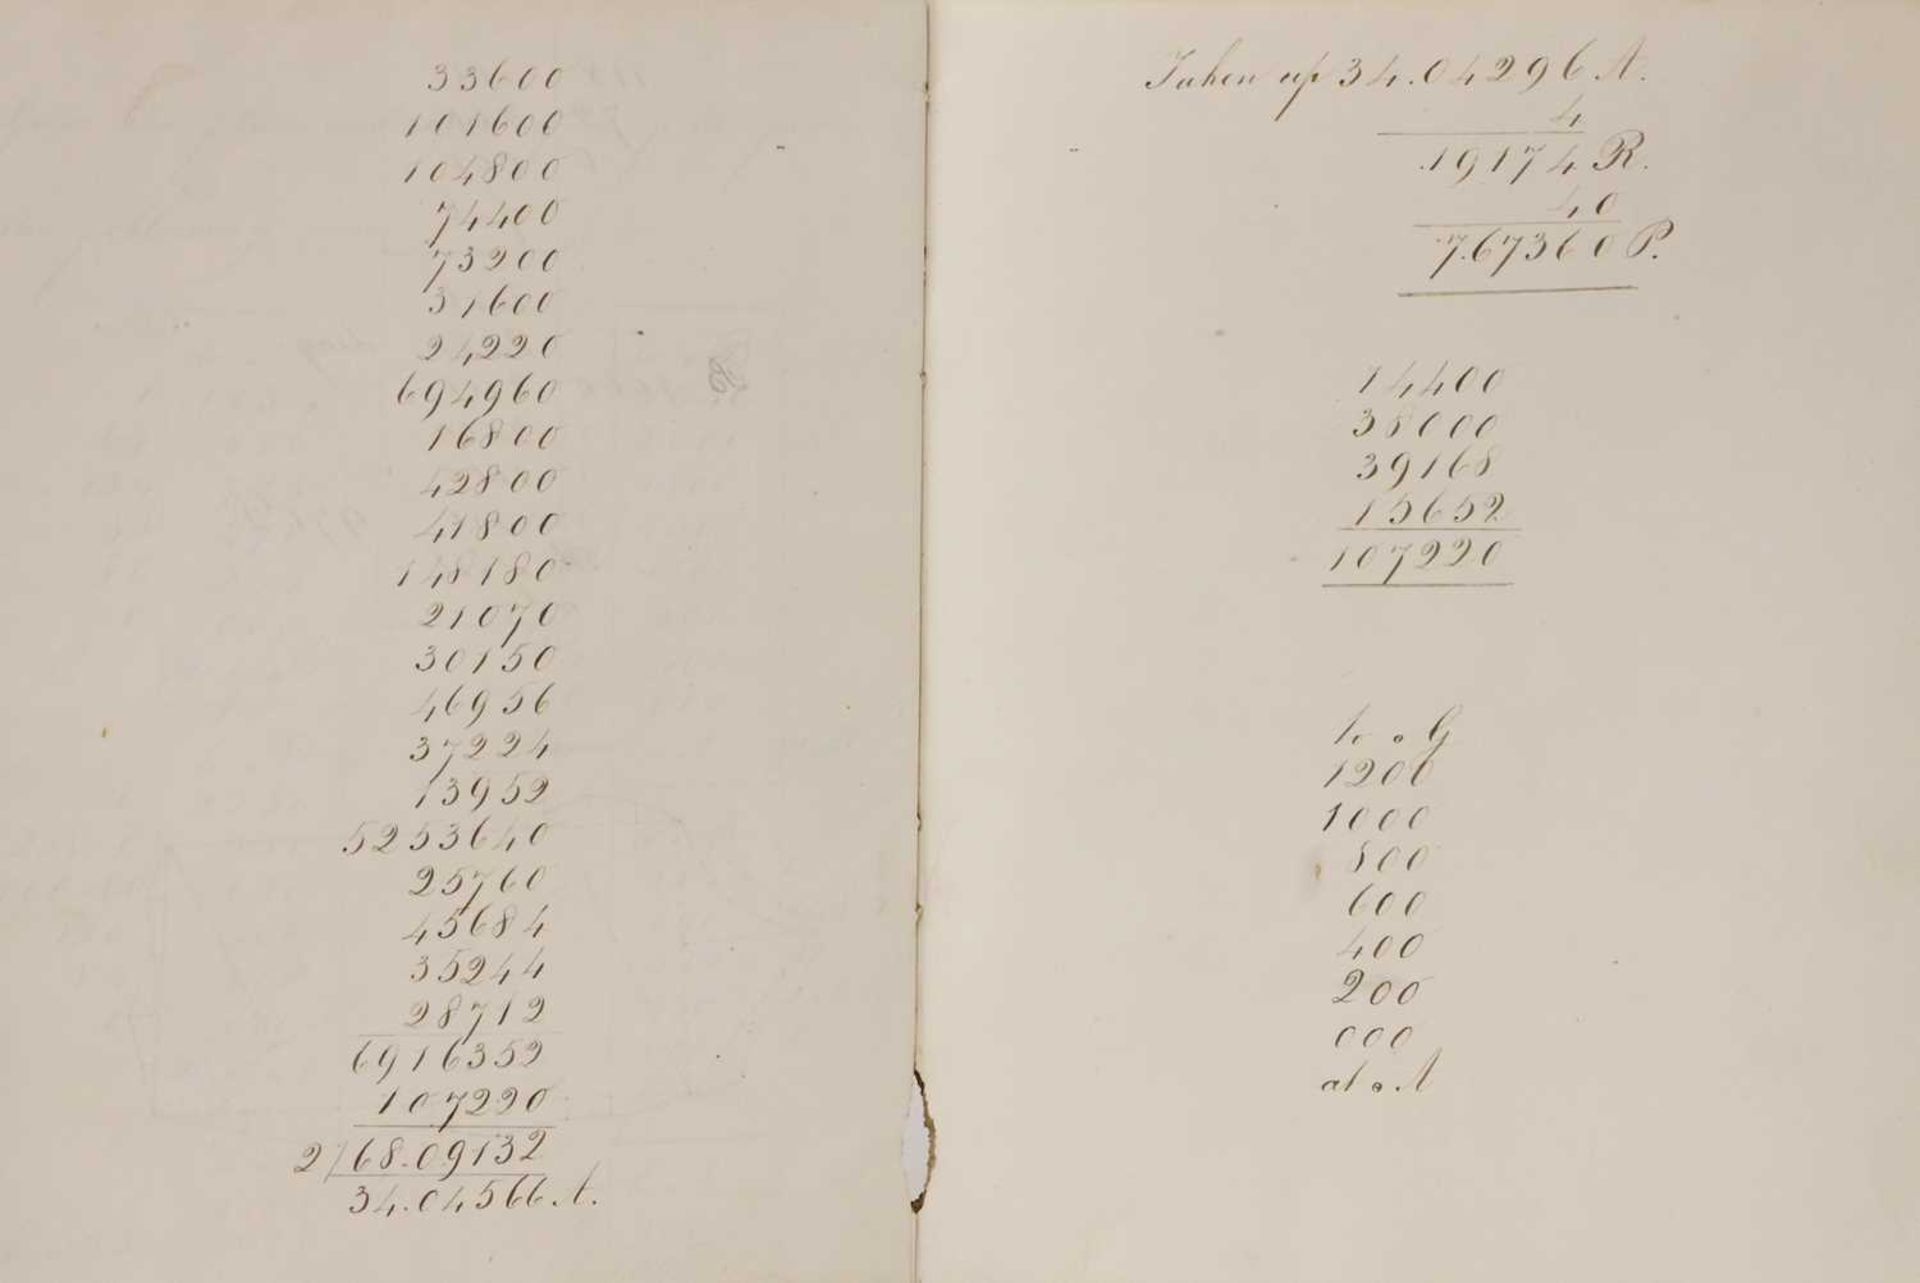 33600
101600
104800
74400
73200
31600
24220
694960
16800
42800
41800
148180
21070
30150
46956
37224
13952
5253640
25760
45684
35244
28712
6916352
107220
2/68.09132
34.04566.A.
Taken up 34.04296 A.
4
.19174 R.
40
7.67360 P.
14400
38000
39168
15652
107220
to o G
1200
1000
800
600
400
200
000
at o A